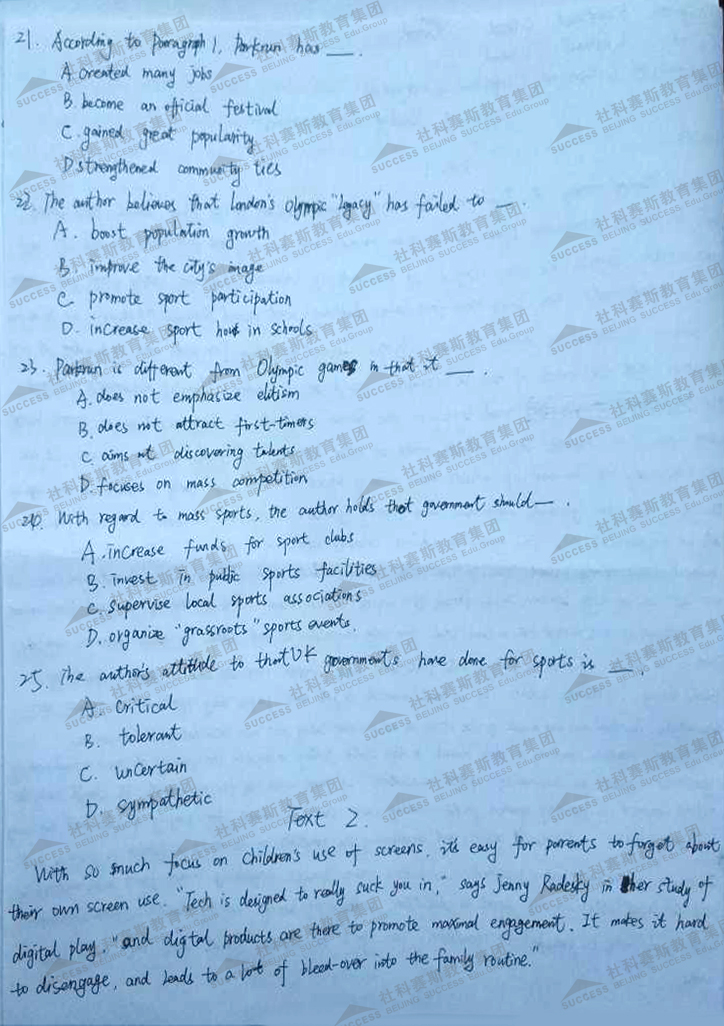 21. According to Paragraph 1, Parkrun has ___.
A. created many jobs
B. become an official festival
C. gained great popularity
D strengthened community ties
22. The author believes that London's Olympic "legacy" has failed to __.
A. boost population growth
B. improve the city's image
C. promote sport participation
D. increase sport hours in schools
23. Parkrun is different from Olympic games in that it ___.
A. does not emphasize elitism
B. does not attract first-timers
C. aims at discovering talents
D. focuses on mass competition
24. With regard to mass sports, the author holds that government should __.
A. increase funds for sport clubs
B. invest in public sports facilities
C. supervise local sports associations
D. organize "grassroots" sports events.
25. The author's attitude to that UK governments have done for sports is ___.
A. critical
B. tolerant
C. uncertain
D. sympathetic
Text 2.
With so much focus on children's use of screens, it's easy for parents to forget about
their own screen use. "Tech is designed to really suck you in," says Jenny Radesky in her study of
digital play, "and digital products are there to promote maximal engagement. It makes it hard
to disengage, and leads to a lot of bleed-over into the family routine."
社科赛斯教育集团
SUCCESS BEIJING SUCCESS Edu.Group